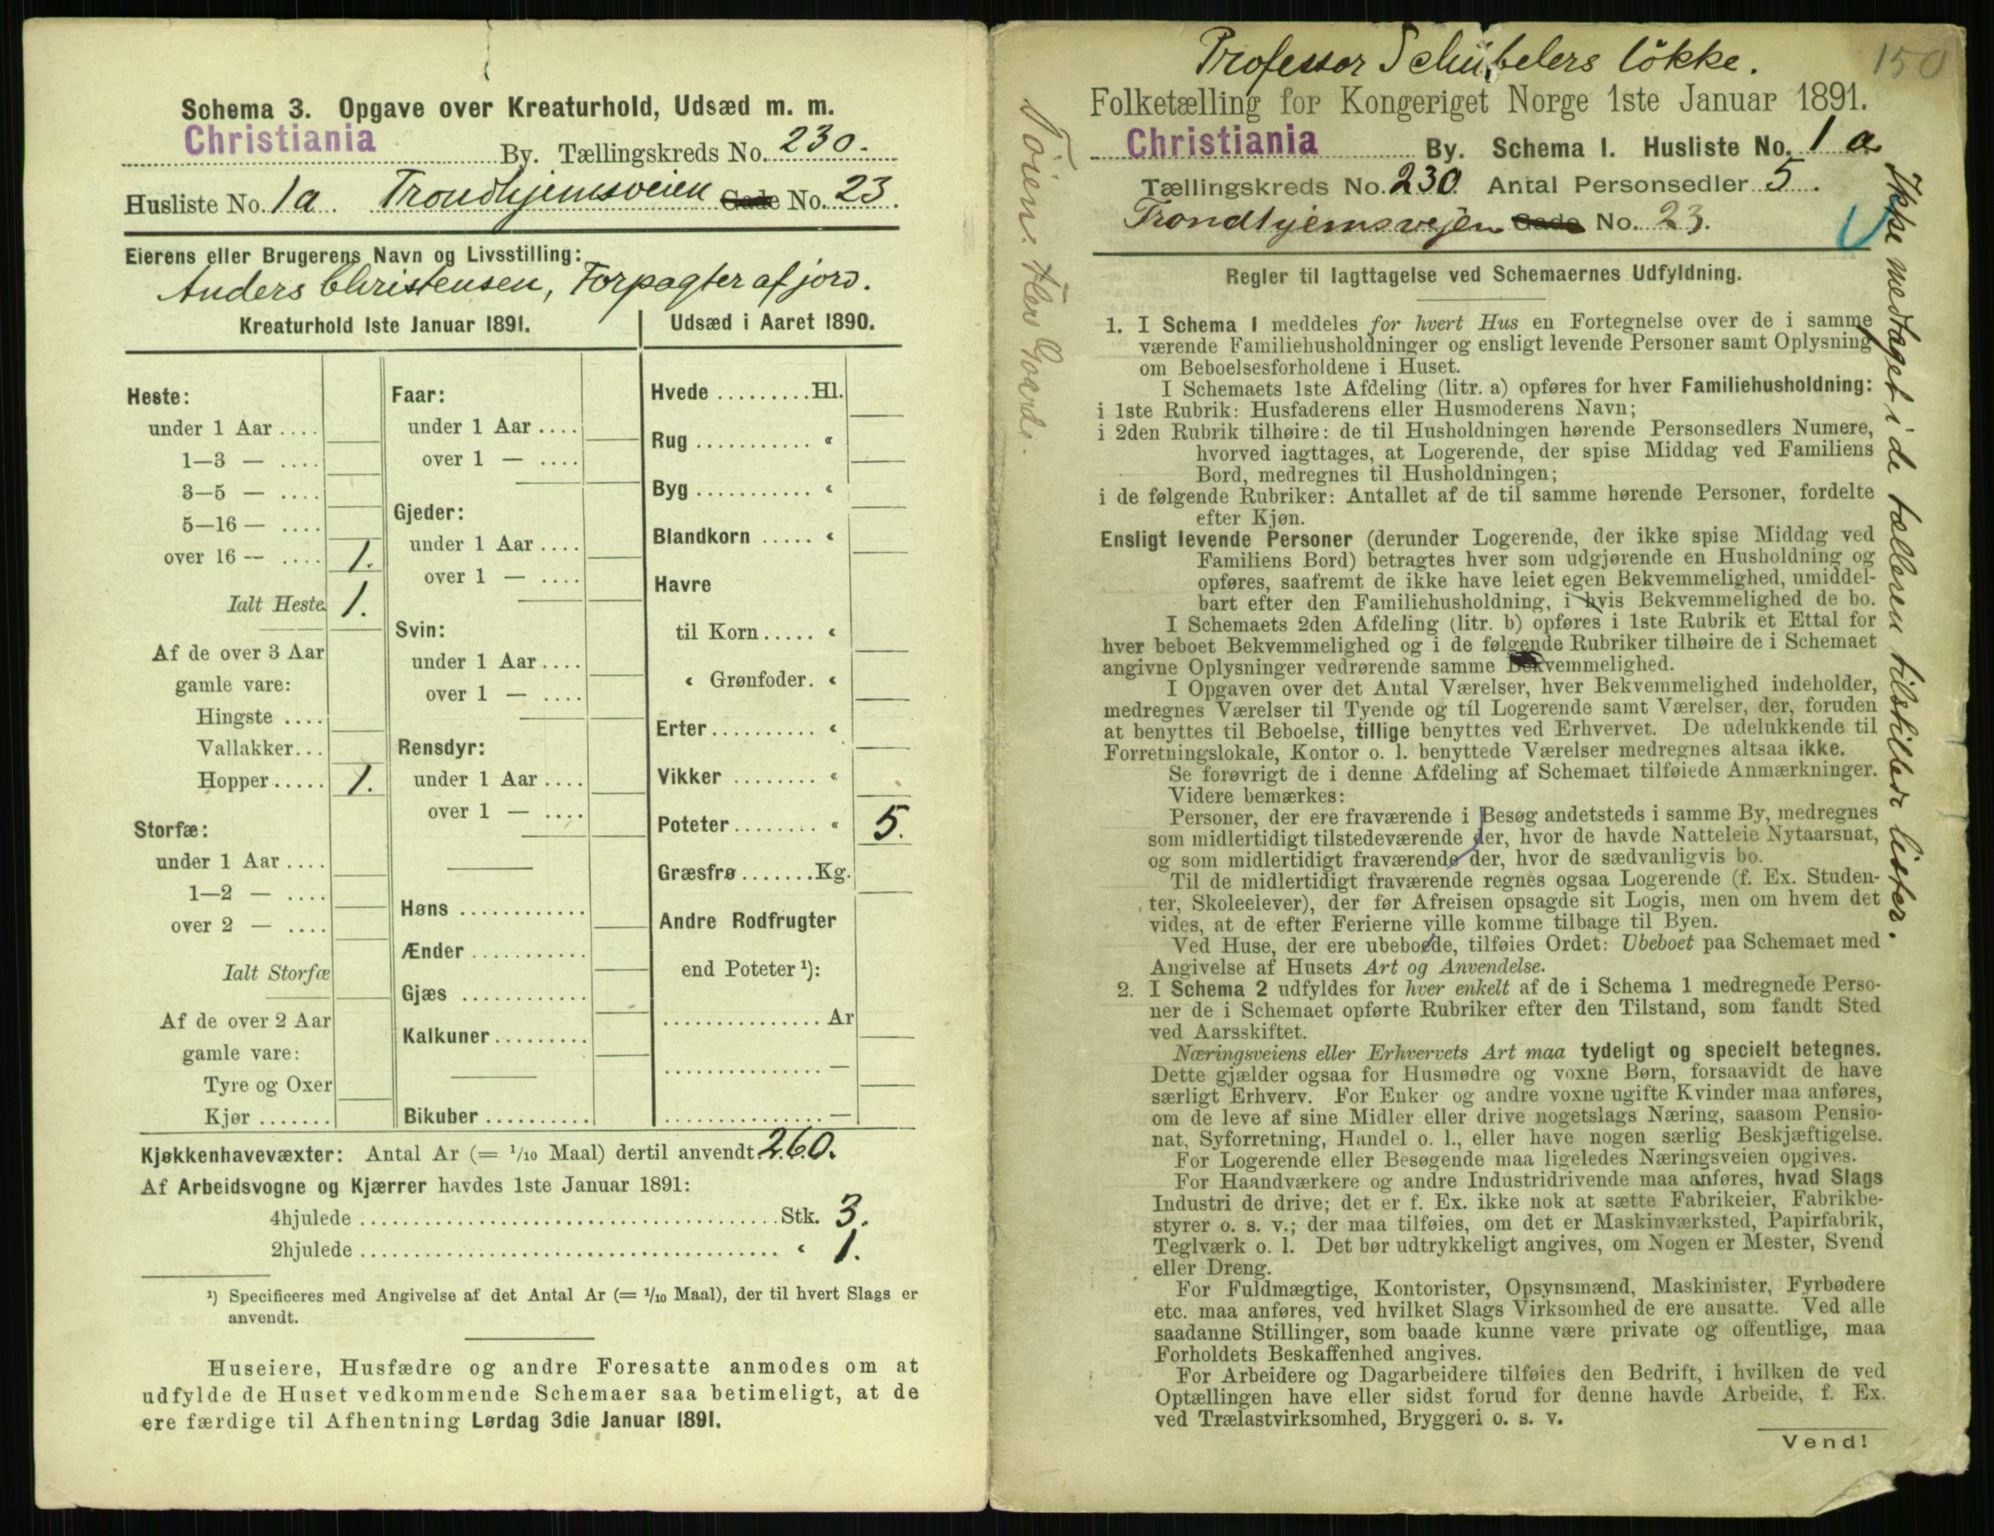 Schema 3. Opgave over Kreaturhold, Udsæd m. m.
Christiania By. Tællingskreds No. 230.
Husliste No. 1a Trondhjemsveien Gade No. 23.
Eierens eller Brugerens Navn og Livsstilling:
Anders Christensen, Forpagter af jord.
Kreaturhold 1ste Januar 1891.
Heste:
under 1 Aar ....
1—3 — ....
3—5 — ....
5—16 — ....
over 16 — .... 1.
Ialt Heste 1.
Af de over 3 Aar
gamle vare:
Hingste ....
Vallakker...
Hopper..... 1.
Storfæ:
under 1 Aar ....
1—2 — ....
over 2 — ....
Ialt Storfæ
Af de over 2 Aar
gamle vare:
Tyre og Oxer
Kjør .......
Faar:
under 1 Aar ....
over 1 — ....
Gjeder:
under 1 Aar ....
over 1 — ....
Svin:
under 1 Aar ....
over 1 — ....
Rensdyr:
under 1 Aar ....
over 1 — ....
Høns ............
Ænder ...........
Gjæs ............
Kalkuner.........
Bikuber ..........
Udsæd i Aaret 1890.
Hvede ......... Hl.
Rug ........... «
Byg ........... «
Blandkorn ..... «
Havre
til Korn ..... «
« Grønfoder. «
Erter.......... «
Vikker ........ «
Poteter........ « 5.
Græsfrø ....... Kg.
Andre Rodfrugter
end Poteter ¹):
............... Ar
............... —
............... —
Kjøkkenhavevæxter: Antal Ar (= 1/10 Maal) dertil anvendt 260.
Af Arbeidsvogne og Kjærrer havdes 1ste Januar 1891:
4hjulede ........................................ Stk. 3.
2hjulede ........................................ « 1.
¹) Specificeres med Angivelse af det Antal Ar (= 1/10 Maal), der til hvert Slags er
anvendt.
Huseiere, Husfædre og andre Foresatte anmodes om at
udfylde de Huset vedkommende Schemaer saa betimeligt, at de
ere færdige til Afhentning Lørdag 3die Januar 1891.
Professor Schübelers løkke.
150
Folketælling for Kongeriget Norge 1ste Januar 1891.
Christiania By. Schema I. Husliste No. 1 a
Tællingskreds No. 230 Antal Personsedler 5.
Trondhjemsvejen Gade No. 23.
Tøien Gaard.
Ikke medtaget i de tælleren tilstillede lister.
Regler til Iagttagelse ved Schemaernes Udfyldning.
1. I Schema 1 meddeles for hvert Hus en Fortegnelse over de i samme
værende Familiehusholdninger og ensligt levende Personer samt Oplysning
om Beboelsesforholdene i Huset.
I Schemaets 1ste Afdeling (litr. a) opføres for hver Familiehusholdning:
i 1ste Rubrik: Husfaderens eller Husmoderens Navn;
i 2den Rubrik tilhøire: de til Husholdningen hørende Personsedlers Numere,
hvorved iagttages, at Logerende, der spise Middag ved Familiens
Bord, medregnes til Husholdningen;
i de følgende Rubriker: Antallet af de til samme hørende Personer, fordelte
efter Kjøn.
Ensligt levende Personer (derunder Logerende, der ikke spise Middag ved
Familiens Bord) betragtes hver som udgjørende en Husholdning og
opføres, saafremt de ikke have leiet egen Bekvemmelighed, umiddel-
bart efter den Familiehusholdning, i hvis Bekvemmelighed de bo.
I Schemaets 2den Afdeling (litr. b) opføres i 1ste Rubrik et Ettal for
hver beboet Bekvemmelighed og i de følgende Rubriker tilhøire de i Schemaet
angivne Oplysninger vedrørende samme Bekvemmelighed.
I Opgaven over det Antal Værelser, hver Bekvemmelighed indeholder,
medregnes Værelser til Tyende og til Logerende samt Værelser, der, foruden
at benyttes til Beboelse, tillige benyttes ved Erhvervet. De udelukkende til
Forretningslokale, Kontor o. l. benyttede Værelser medregnes altsaa ikke.
Se forøvrigt de i denne Afdeling af Schemaet tilføiede Anmærkninger.
Videre bemærkes:
Personer, der ere fraværende i Besøg andetsteds i samme By, medregnes
som midlertidigt tilstedeværende der, hvor de havde Natteleie Nytaarsnat,
og som midlertidigt fraværende der, hvor de sædvanligvis bo.
Til de midlertidigt fraværende regnes ogsaa Logerende (f. Ex. Studen-
ter, Skoleelever), der før Afreisen opsagde sit Logis, men om hvem det
vides, at de efter Ferierne ville komme tilbage til Byen.
Ved Huse, der ere ubeboede, tilføies Ordet: Ubeboet paa Schemaet med
Angivelse af Husets Art og Anvendelse.
2. I Schema 2 udfyldes for hver enkelt af de i Schema 1 medregnede Perso-
ner de i Schemaet opførte Rubriker efter den Tilstand, som fandt Sted
ved Aarsskiftet.
Næringsveiens eller Erhvervets Art maa tydeligt og specielt betegnes.
Dette gjælder ogsaa for Husmødre og voxne Børn, forsaavidt de have
særligt Erhverv. For Enker og andre voxne ugifte Kvinder maa anføres,
om de leve af sine Midler eller drive nogetslags Næring, saasom Pensio-
nat, Syforretning, Handel o. l., eller have nogen særlig Beskjæftigelse.
For Logerende eller Besøgende maa ligeledes Næringsveien opgives.
For Haandværkere og andre Industridrivende maa anføres, hvad Slags
Industri de drive; det er f. Ex. ikke nok at sætte Fabrikeier, Fabrikbe-
styrer o. s. v.; der maa tilføies, om det er Maskinværksted, Papirfabrik,
Teglværk o. l. Det bør udtrykkeligt angives, om Nogen er Mester, Svend
eller Dreng.
For Fuldmægtige, Kontorister, Opsynsmænd, Maskinister, Fyrbødere
etc. maa anføres, ved hvilket Slags Virksomhed de ere ansatte. Ved alle
saadanne Stillinger, som baade kunne være private og offentlige, maa
Forholdets Beskaffenhed angives.
For Arbeidere og Dagarbeidere tilføies den Bedrift, i hvilken de ved
Optællingen have eller sidst forud for denne havde Arbeide, f. Ex.
ved Trælastvirksomhed, Bryggeri o. s. v.
Vend!